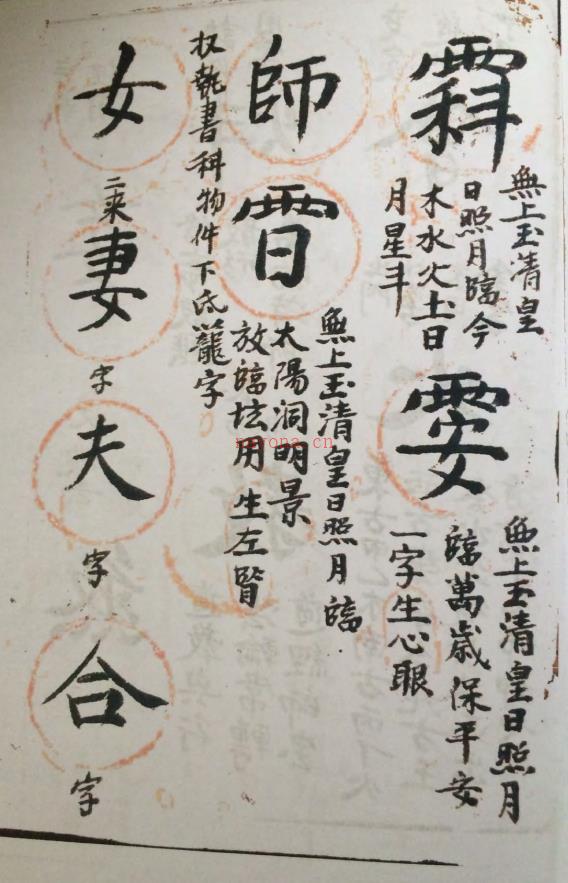 無上玉清皇
日照月臨今
木水火土日
月星斗
無上玉清皇日照月
臨萬歲保平安
一字生心眼
師
無上玉清皇日照月臨
太陽洞明景
放臨坛用生左腎
執書科物件下底籠字
女
二来
妻
字
夫
字
合
字
nayona.cn